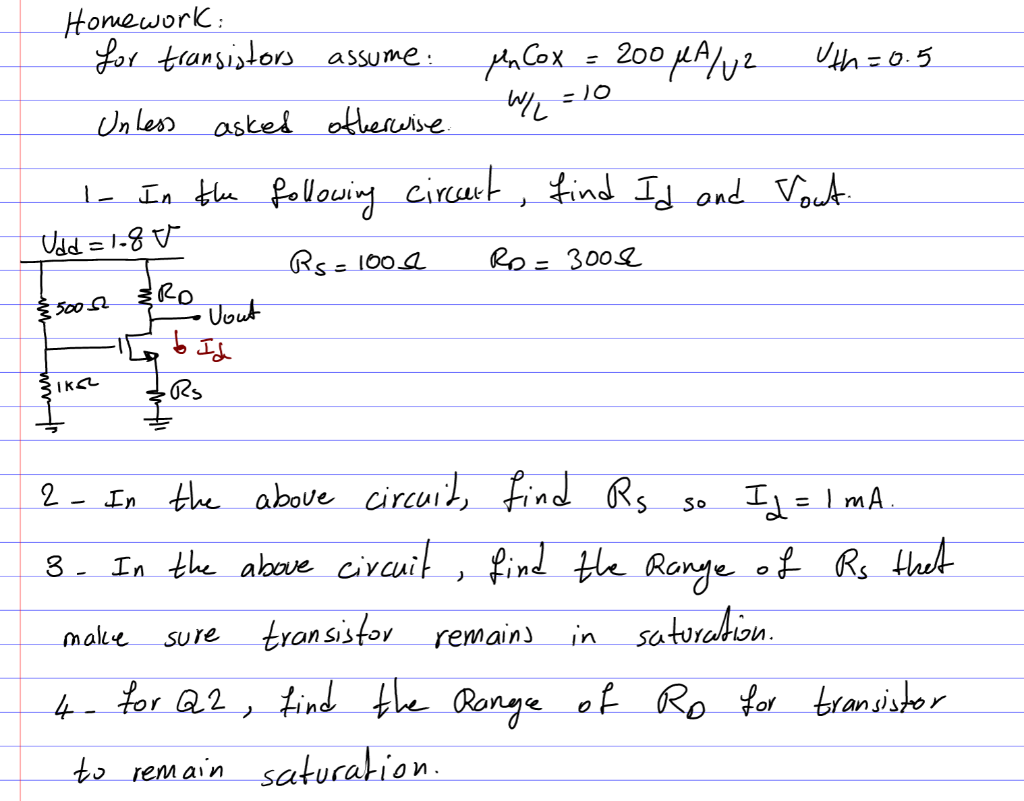 Homework:
for transistors assume: μnCox = 200 μA/V2 Vth = 0.5
W/L = 10
Unless asked otherwise.
1- In the following circuit, find Id and Vout.
Vdd = 1.8 V
Rs = 100Ω RD = 300Ω
500Ω
RD
Vout
Id
1KΩ
Rs
2 - In the above circuit, find Rs so Id = 1 mA.
3 - In the above circuit, find the Range of Rs that
make sure transistor remains in saturation.
4 - for Q2, find the Range of RD for transistor
to remain saturation.